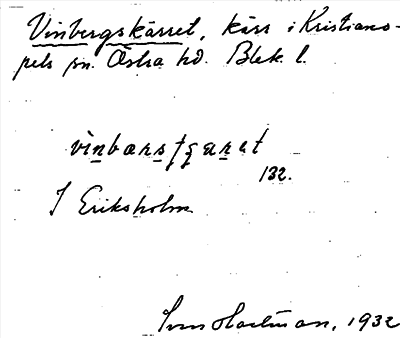 Vinbergskärret, kärr i Kristiano-
pels sn. Östra hd. Blek. l.
132.
I Eriksholm
Sven Hartman, 1932